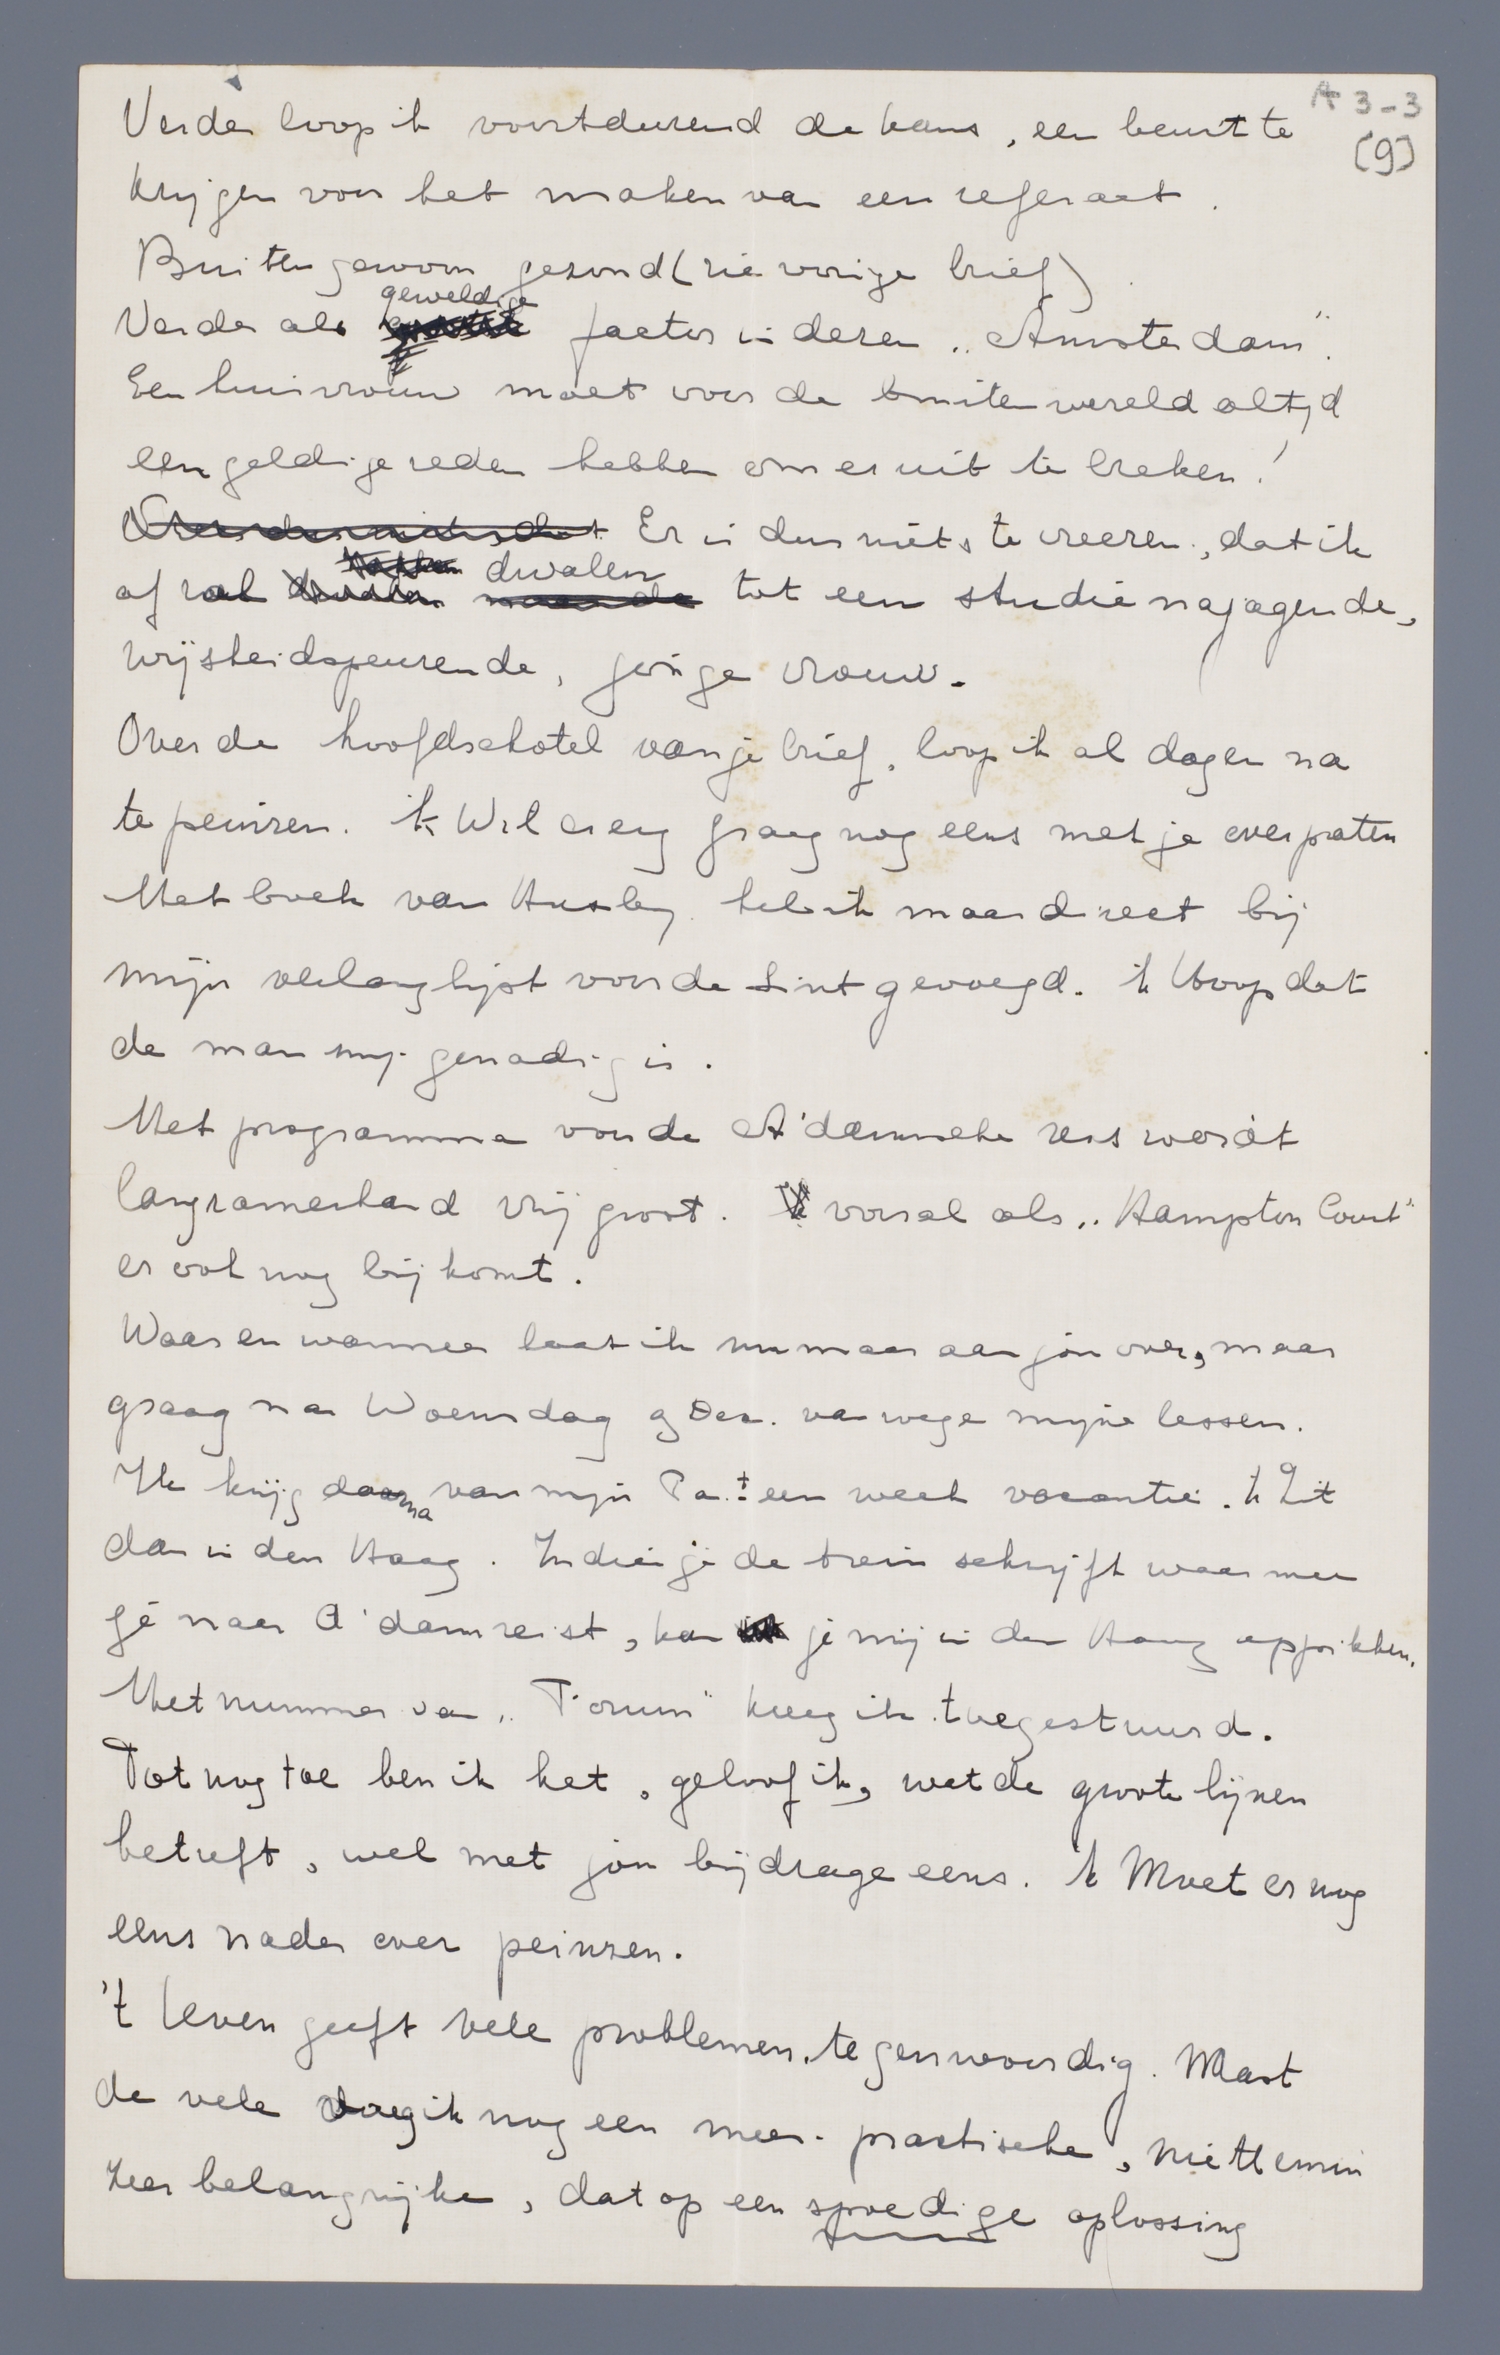 A 3-3
(9)
Verder loop ik voortdurend de kans, een beurt te
krijgen voor het maken van een referaat.
Buitengewoon gezond (zie vorige brief)
geweldige
Verder als factor in dezen „Amsterdam".
Een huisvrouw moet voor de buitenwereld altijd
een geldige reden hebben om er uit te breken!
Er is dus niets te vreezen, dat ik
dwalen
af zal tot een studie najagende,
wijsheidspeurende, jonge vrouw.
Over de hoofdschotel van je brief, loop ik al dagen na
te peinzen. 'k Wil er erg graag nog eens met je over praten
Het boek van Huxley heb ik maar direct bij
mijn verlanglijst voor de Sint gevoegd. 'k Hoop dat
de man mij genadig is.
Het programma voor de A'damsche reis wordt
langzamerhand vrij groot. vooral als „Hampton Court"
er ook nog bij komt.
Waar en wanneer laat ik nu maar aan jou over, maar
graag na Woensdag 9 Dec. vanwege mijne lessen.
Ik krijg daarna van mijn Pa ± een week vacantie. 'k Zit
dan in den Haag. Indien je de trein schrijft waarmee
je naar A'dam reist, kan je mij in den Haag oppikken.
Het nummer van „Forum" kreeg ik toegestuurd.
Tot nog toe ben ik het, geloof ik, wat de groote lijnen
betreft, wel met jou bijdrage eens. 'k Moet er nog
eens nader over peinzen.
't Leven geeft vele problemen, tegenwoordig. Naast
de vele voeg ik nog een meer practische, niettemin
zeer belangrijke, dat op een spoedige oplossing